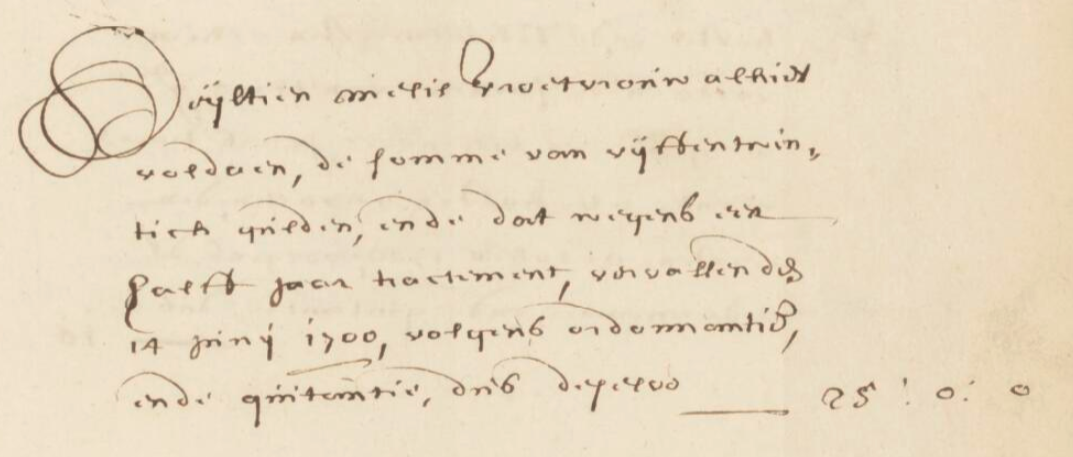 Wijltien Melis Vroetvrouw alhier
voldaen, de somme van vijffentwin„
tich gulden, ende dat wegens een
halff jaar tractement, vervallen de
14 Junij 1700, volgens ordonnantie,
ende quitantie, dus depexo 25 : 0 : 0